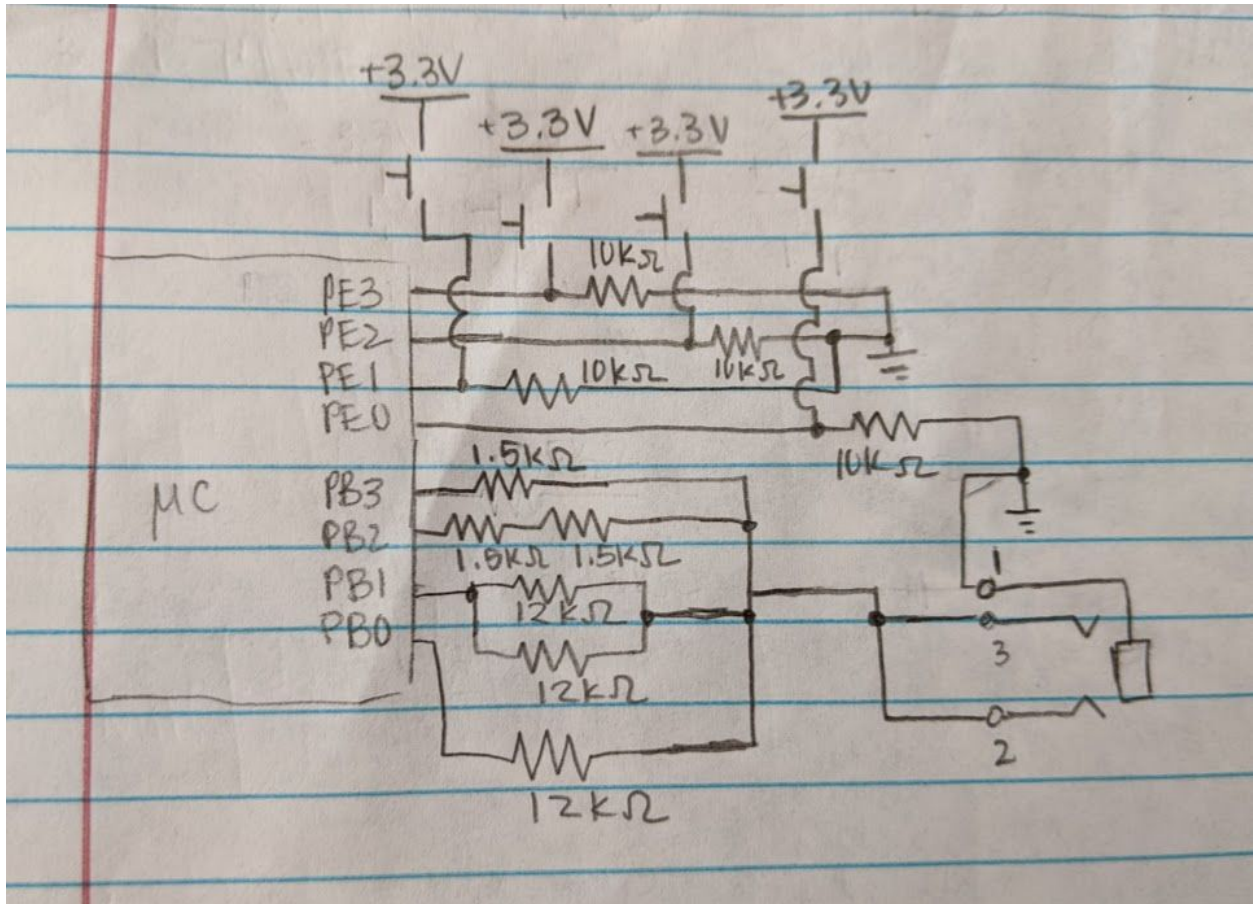 +3.3V
+3.3V +3.3V +3.3V
10KΩ
PE3
PE2
PE1 10KΩ 10KΩ
PE0
10KΩ
1.5KΩ
μC PB3
PB2
1.5KΩ 1.5KΩ
PB1 1
12KΩ
PB0
3
12KΩ
2
12KΩ